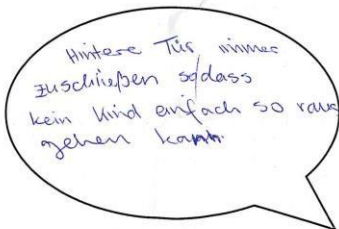 Hintere Tür immer
zuschließen sodass
kein Kind einfach so raus
gehen kann.